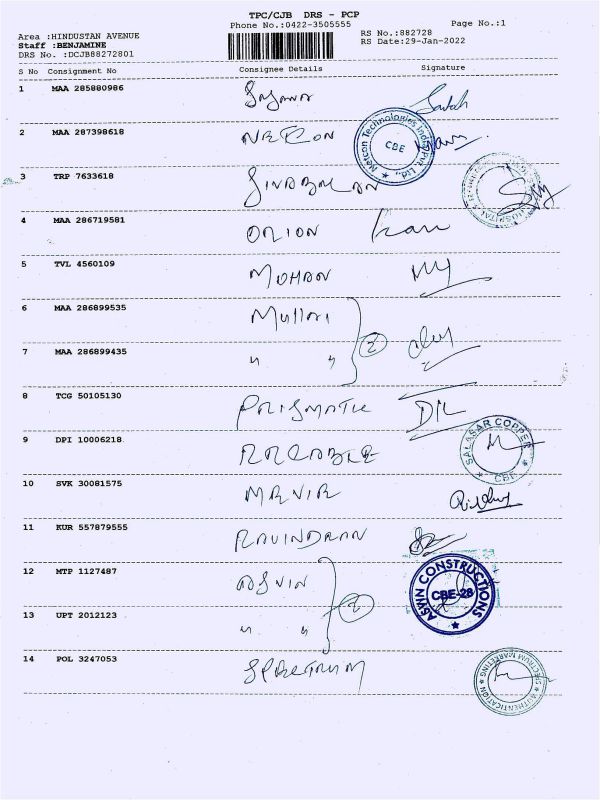 TPC/CJB DRS - PCP
Phone No.:0422-3505555
Page No.:1
Area :HINDUSTAN AVENUE
RS No.:882728
Staff :BENJAMINE
RS Date:29-Jan-2022
DRS No. :DCJB88272801
S No Consignment No Consignee Details Signature
1 MAA 285880986
2 MAA 287398618 NETCON
Netcon Technologies India Pvt. Ltd., CBE
3 TRP 7633618
HOSPITAL
4 MAA 286719581 ORION
5 TVL 4560109 MOHAN
6 MAA 286899535 Mullai
7 MAA 286899435 " " 2
8 TCG 50105130 PRISMATIC
9 DPI 10006218
SALASAR COPPER CBE
10 SVK 30081575
11 KUR 557879555 RAVINDRAN
12 MTP 1127487 ASVIN
ASWIN CONSTRUCTIONS CBE-28
13 UPT 2012123 " " 2
14 POL 3247053 SPECTRUM
SPECTRUM MARKETING AUTHENTICATION